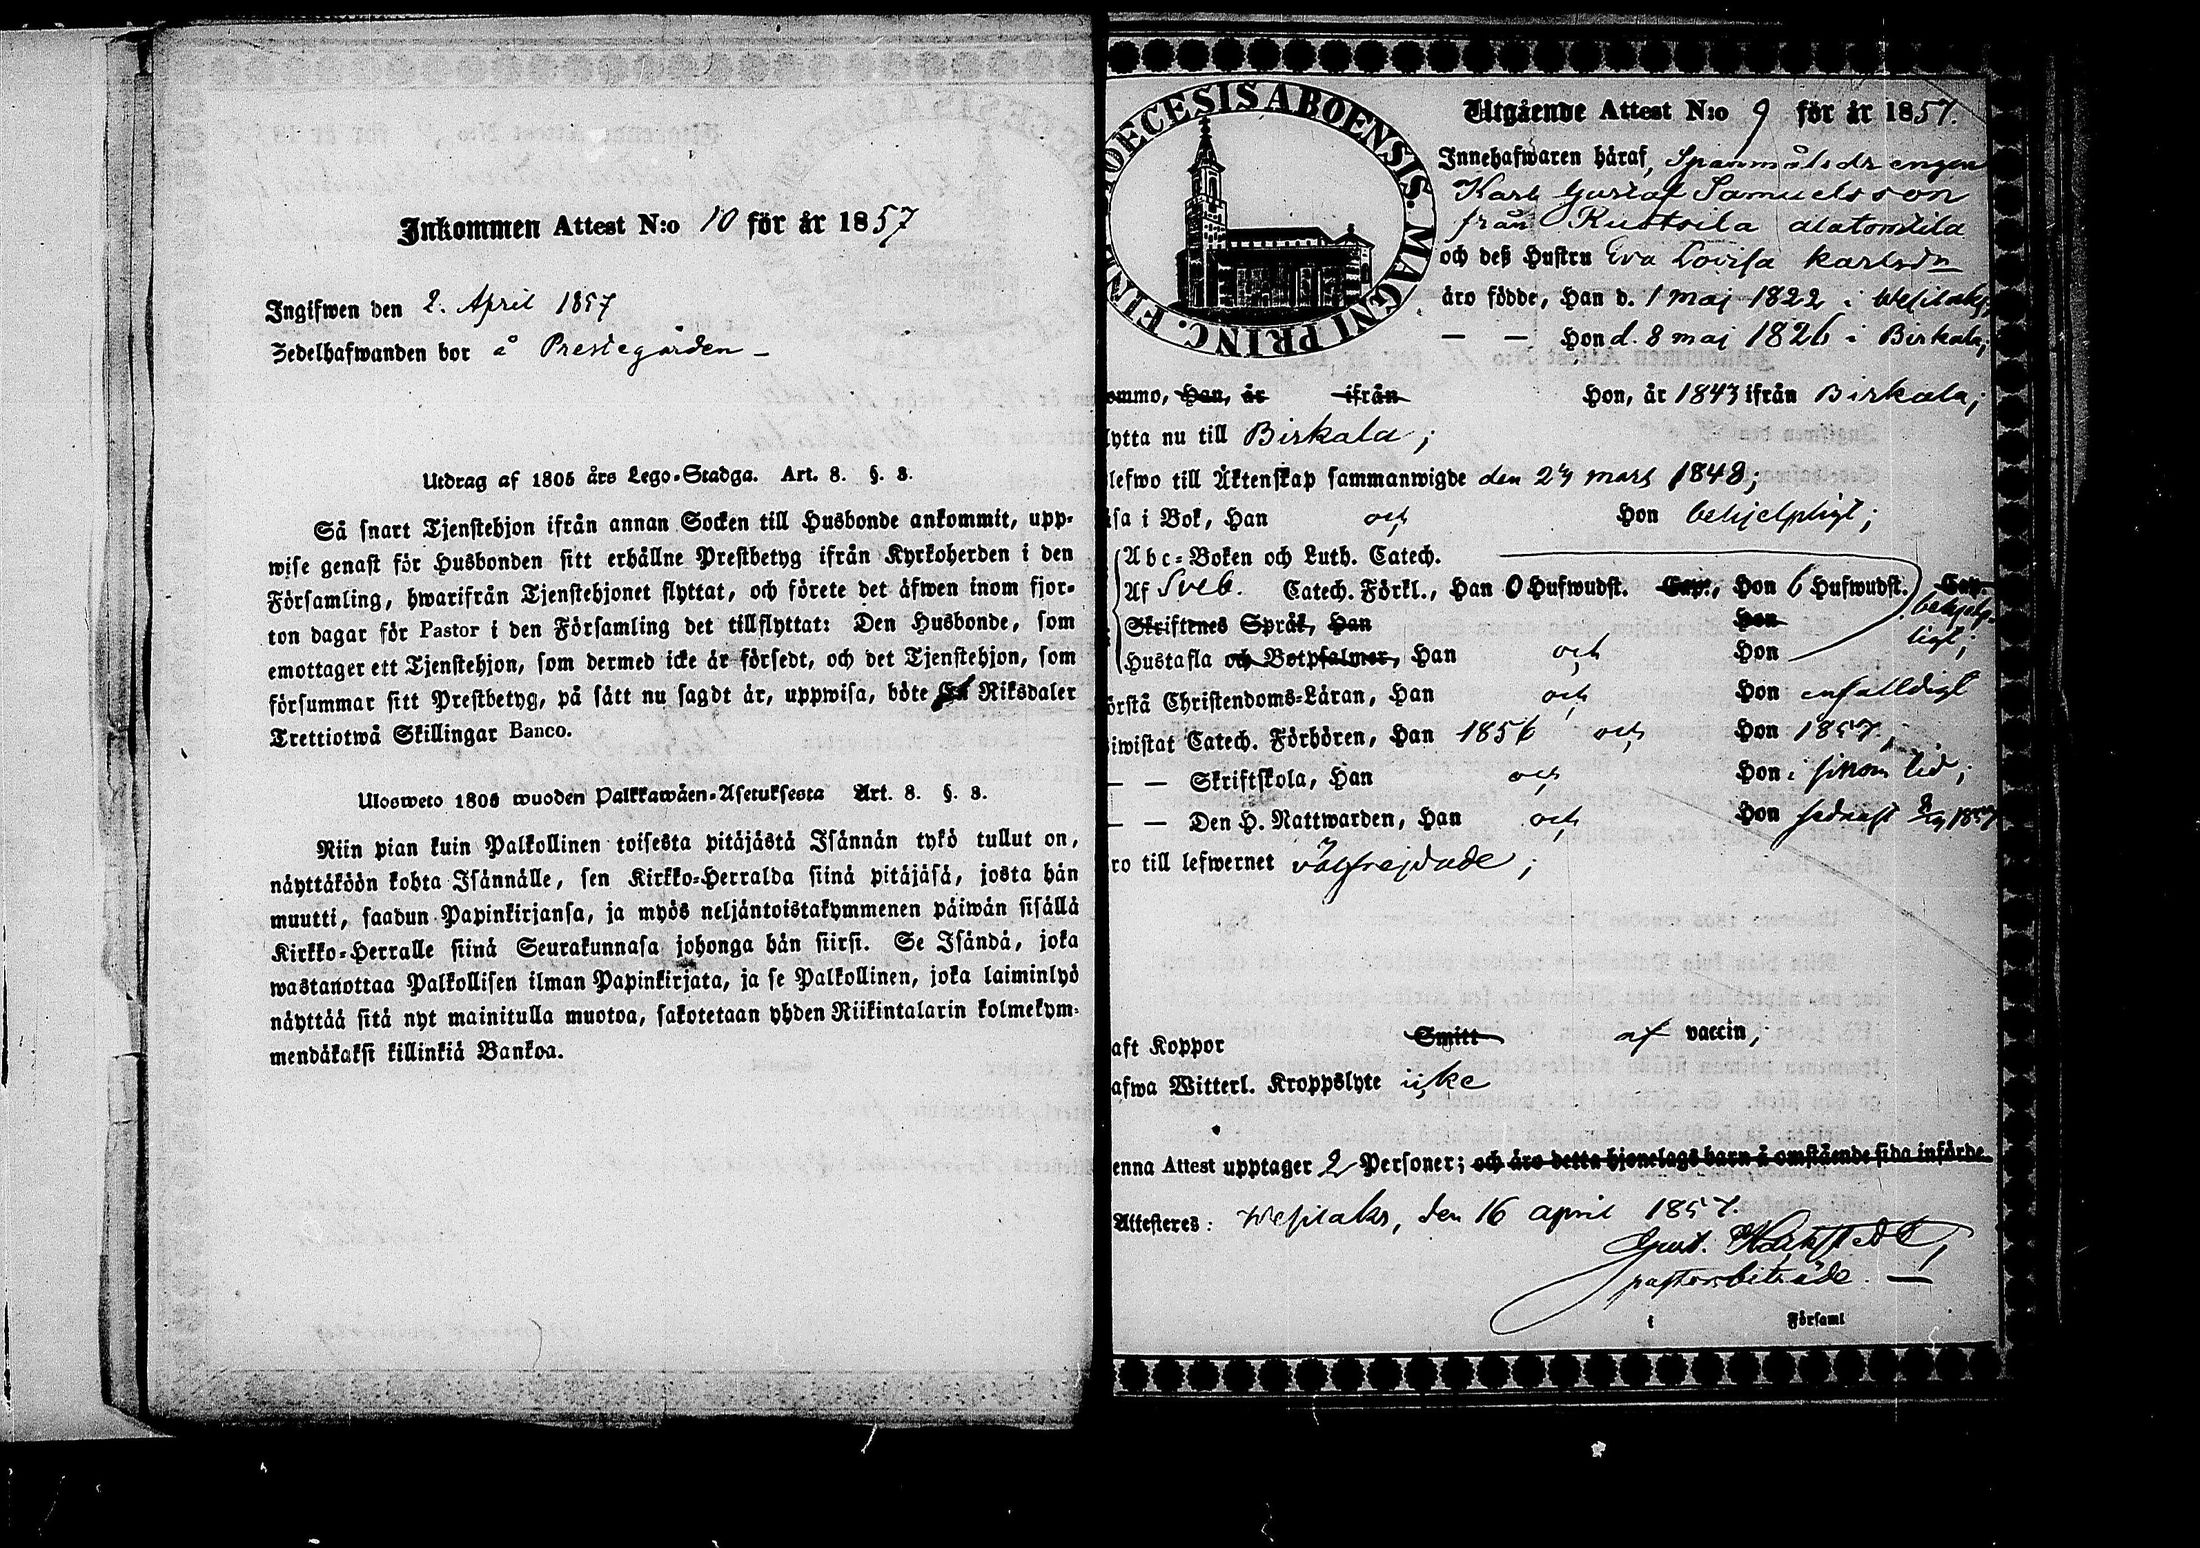 Inkommen Attest N:o 10 för år 1857
Ingifwen den 2. April 1857
Zedelhafwanden bor å Prestegården –
Utdrag af 1805 års Lego-Stadga. Art. 8. §. 3.
Så snart Tjenstehjon ifrån annan Socken till Husbonde ankommit, upp-
wise genast för Husbonden sitt erhållne Prestbetyg ifrån Kyrkoherden i den
Församling, hwarifrån Tjenstehjonet flyttat, och förete det äfwen inom fjor-
ton dagar för Pastor i den Församling det tillflyttat: Den Husbonde, som
emottager ett Tjenstehjon, som dermed icke är försedt, och det Tjenstehjon, som
försummar sitt Prestbetyg, på sätt nu sagdt är, uppwisa, böte En Riksdaler
Trettiotwå Skillingar Banco.
Ulosweto 1805 wuoden Palkkawäen-Asetuksesta Art. 8. §. 3.
Niin pian kuin Palkollinen toisesta pitäjästä Isännän tykö tullut on,
näyttäköön kohta Isännälle, sen Kirkko-Herralda siinä pitäjäsä, josta hän
muutti, saadun Papinkirjansa, ja myös neljäntoistakymmenen päiwän sisällä
Kirkko-Herralle siinä Seurakunnasa johonga hän siirsi. Se Isändä, joka
wastanottaa Palkollisen ilman Papinkirjata, ja se Palkollinen, joka laiminlyö
näyttää sitä nyt mainitulla muotoa, sakotetaan yhden Riikintalarin kolmekym-
mendäkaksi killinkiä Bankoa.
DIOECESIS ABOENSIS. MAGNI PRINC. FINL
Utgående Attest N:o 9 för år 1857.
Innehafwaren häraf, Spanmålsdrengen
Karl Gustaf Samuelsson
från
och deß Hustru Eva Lovisa Karlsdr
äro födde, Han d. 1 maj 1822 i Wesilaks,
— — Hon d. 8 maj 1826 i Birkala;
ommo, Han, år ifrån Hon, år 1843 ifrån Birkala;
lytta nu till Birkala;
lefwo till Äktenskap sammanwigde den 24 mars 1848;
äsa i Bok, Han och Hon behjelpligt;
Abc-Boken och Luth. Catech.
Af Sveb. Catech. Förkl., Han 0 Hufwudst. Cap., Hon 6 Hufwudst. Cap.
behjelp-
ligt;
Skriftenes Språk, Han Hon
Hustafla och Botpsalmer, Han och Hon
örstå Christendoms-Läran, Han och Hon enfaldigt
iwistat Catech. Förhören, Han 1856 och Hon 1857,
— — Skriftskola, Han och Hon i sinom tid;
— — Den H. Nattwarden, Han och Hon sednast 1857
ro till lefwernet välfrejdade;
aft Koppor Smitt af vaccin,
afwa Witterl. Kroppslyte icke
enna Attest upptager 2 Personer; och äro detta hjonelags barn å omstående sida införde
Attesteres: Wesilaks, den 16 april 1857.
Gust.
pastorsbiträde. —
i Församl